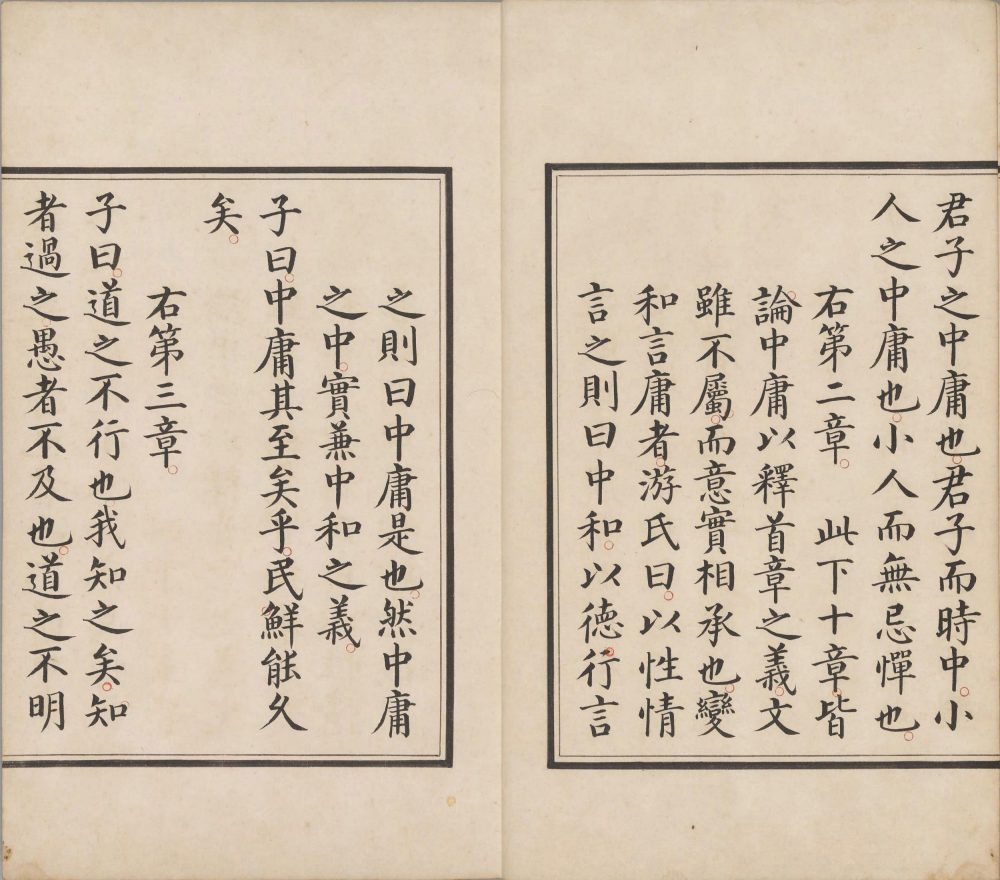 君子之中庸也。君子而時中。小
人之中庸也。小人而無忌憚也。
右第二章。 此下十章。皆
論中庸以釋首章之義。文
雖不屬。而意實相承也。變
和言庸者。游氏曰。以性情
言之則曰中和。以德行言
之則曰中庸是也。然中庸
之中。實兼中和之義。
子曰。中庸其至矣乎。民鮮能久
矣。
右第三章。
子曰。道之不行也我知之矣。知
者過之愚者不及也。道之不明